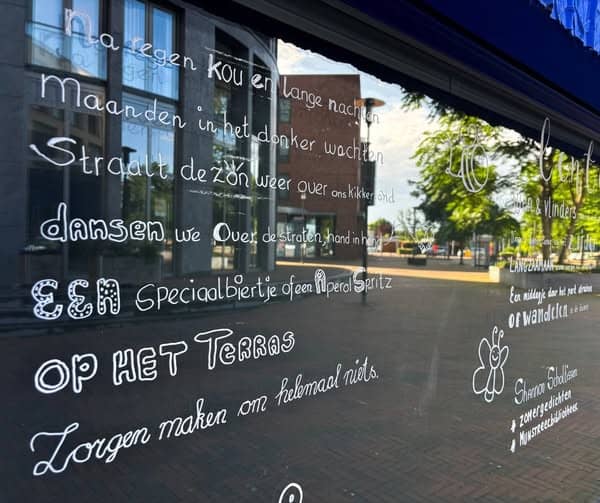 Na regen kou en lange nachten
Maanden in het donker wachten
Straalt de zon weer over ons kikker and
dansen we Over de straten, hand in hand
EEN Speciaalbiertje of een Aperol Spritz
OP HET TERRAS
Zorgen maken om helemaal niets.
& vlinders
LANGZAAM
Een middagje door het park
of wandelen
Shannon Schollissen
# zomergedichten
# Mijnstreekbibliotheek